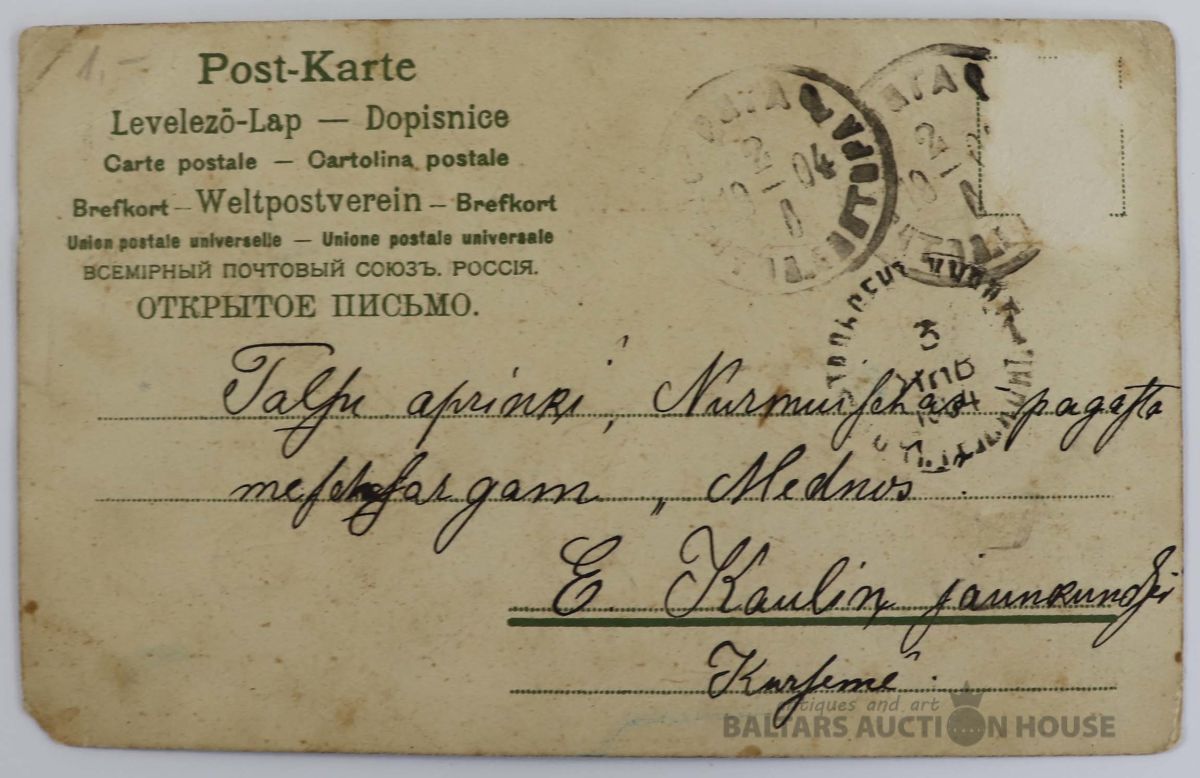 1.-
Post-Karte
Levelezö-Lap — Dopisnice
Carte postale — Cartolina postale
Brefkort — Weltpostverein — Brefkort
Union postale universelle — Unione postale universale
ВСЕМІРНЫЙ ПОЧТОВЫЙ СОЮЗЪ. РОССІЯ.
ОТКРЫТОЕ ПИСЬМО.
РИГА
04
РИГА
3
НОЯ
1904
Talſu aprinkî, Nurmuiſchas pagaſta
meſchſargam „Mednos
E. Kauliņ jaunkundſei
Kurſemê.
antiques and art
BALTARS AUCTION HOUSE